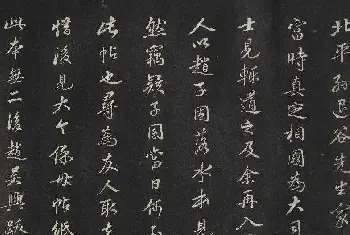 北平孙退谷先生家
當時真定相國為大司
士見輒道之及余再入
人以趙子固落水本見
然竊疑子固當日何以
此帖也尋為友人取去
惜後見大令保母帖紙
此本無二後趙吳興跋